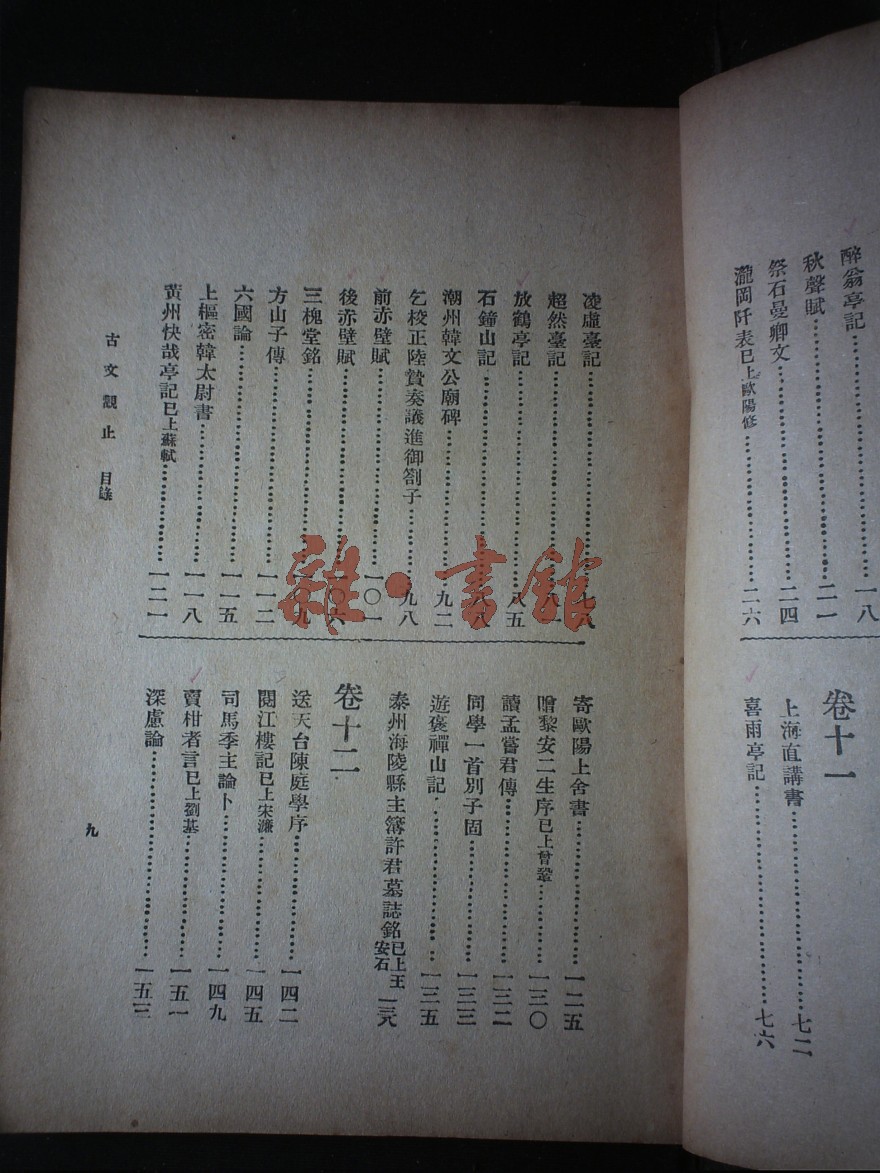 醉翁亭記……………一八
秋聲賦……………二一
祭石曼卿文……………二四
瀧岡阡表已上歐陽修……………二六
卷十一
上海直講書……………七二
喜雨亭記……………七六
凌虛臺記……………七八
超然臺記……………八一
放鶴亭記……………八五
石鐘山記……………八八
潮州韓文公廟碑……………九二
乞校正陸贄奏議進御劄子……………九八
前赤壁賦……………一〇一
後赤壁賦……………一〇六
三槐堂銘……………一〇九
方山子傳……………一一二
六國論……………一一五
上樞密韓太尉書……………一一八
黃州快哉亭記已上蘇軾……………一二一
寄歐陽上舍書……………一二五
贈黎安二生序已上曾鞏……………一三〇
讀孟嘗君傳……………一三二
同學一首別子固……………一三三
遊褒禪山記……………一三五
泰州海陵縣主簿許君墓誌銘已上王安石 一三八
卷十二
送天台陳庭學序……………一四二
閱江樓記已上宋濂……………一四五
司馬季主論卜……………一四九
賣柑者言已上劉基……………一五一
深慮論……………一五三
古文觀止 目錄
九
雜·書館